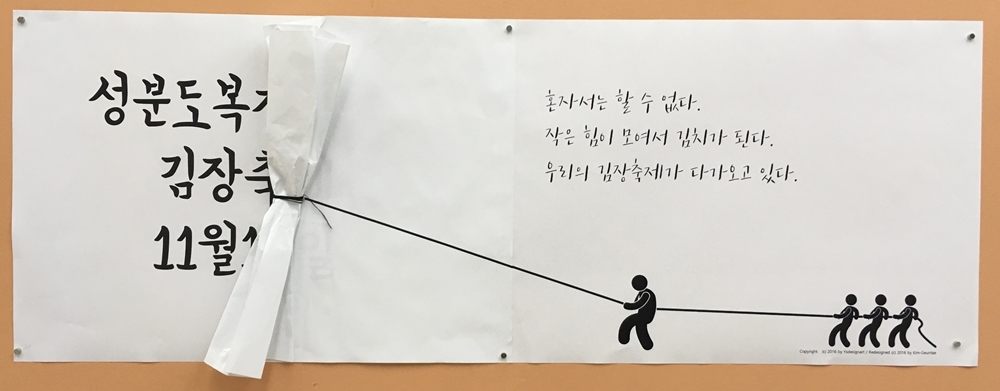 성분도복
김장
11월
혼자서는 할 수 없다.
작은 힘이 모여서 김치가 된다.
우리의 김장축제가 다가오고 있다.
Copyright (c) 2016 by Yodesignart / Redesigned (c) 2016 by Kim Geuntae